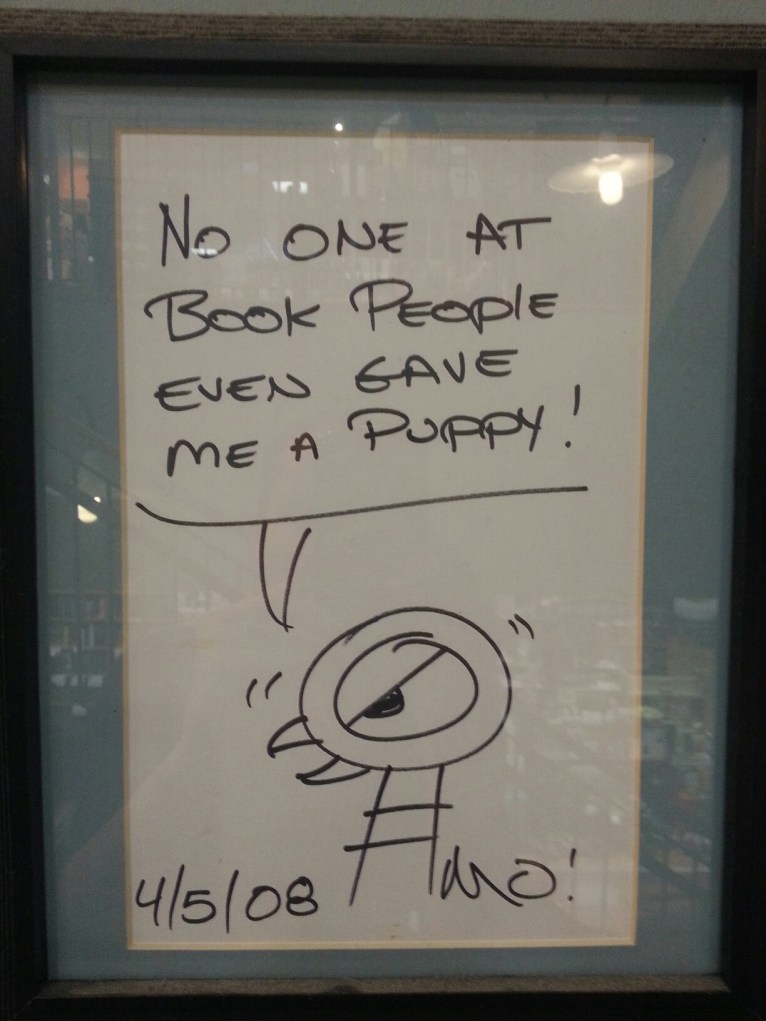 No ONE AT
Book PEOPlE
EVEN GAVE
ME A PUPPY!
4/5/08
MO!